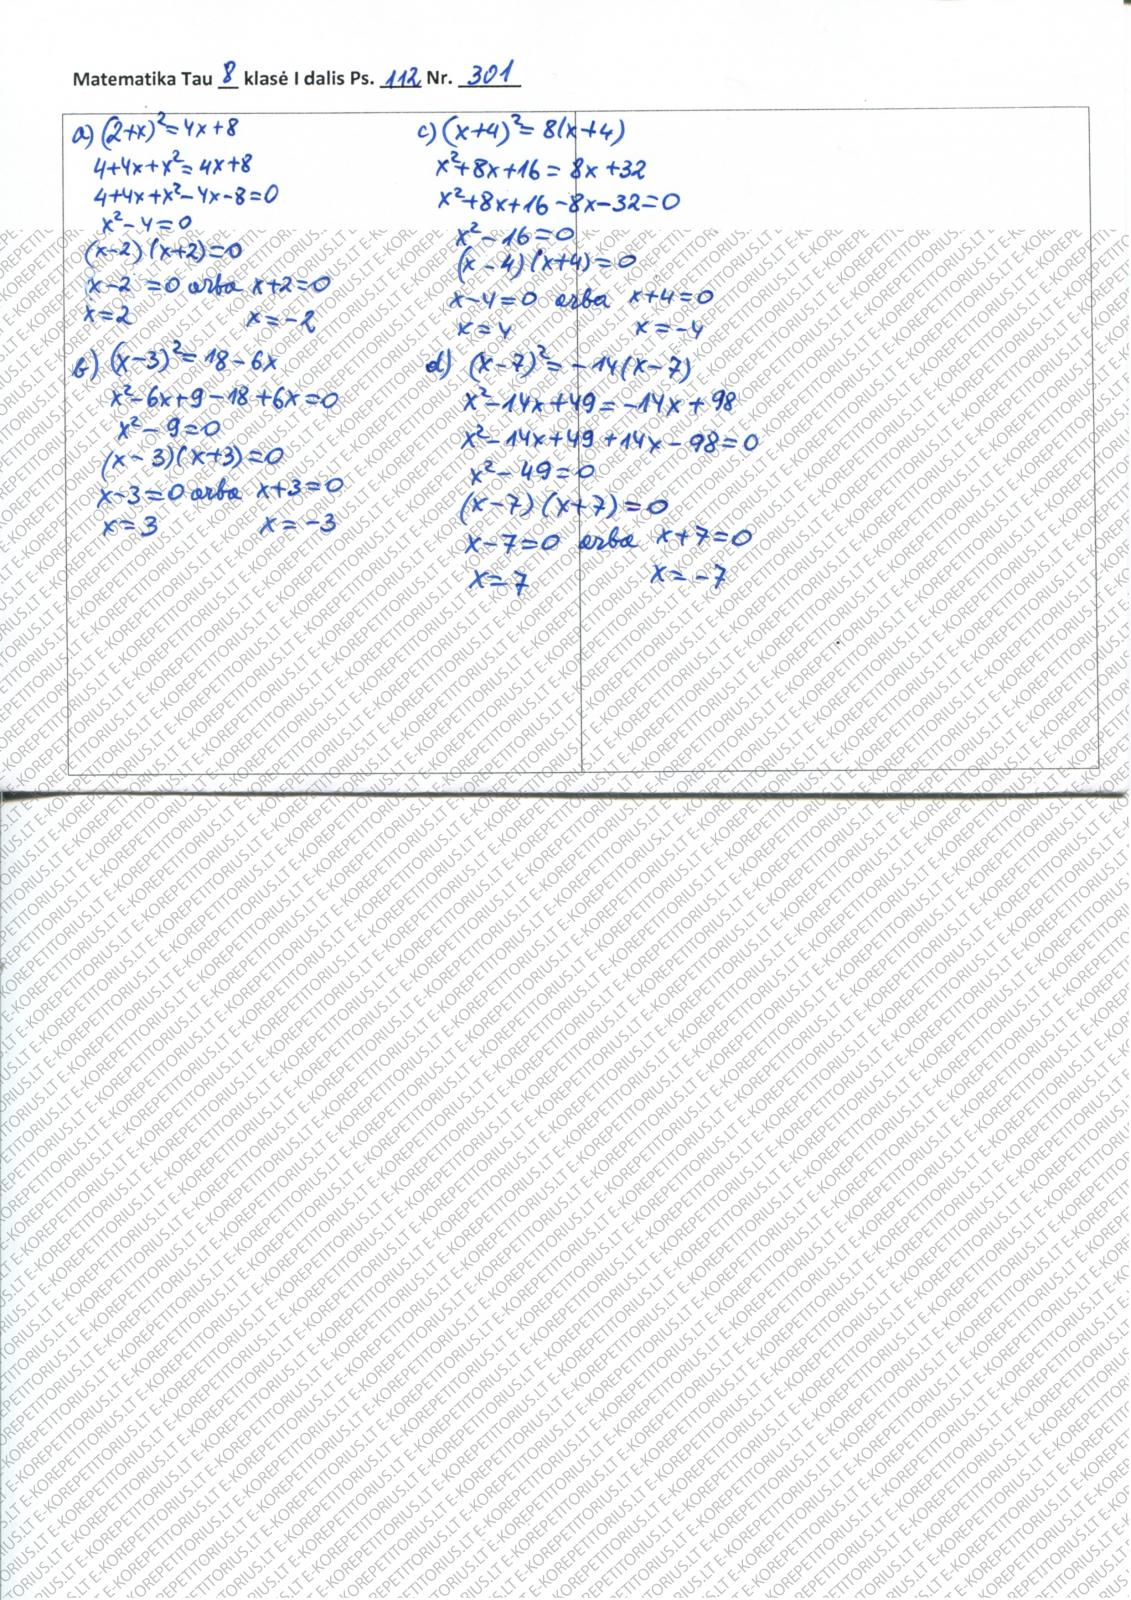 Matematika Tau 8 klasė I dalis Ps. 112 Nr. 301
a) (2+x)²=4x+8
4+4x+x²=4x+8
4+4x+x²-4x-8=0
x²-4=0
(x-2)(x+2)=0
x-2=0 arba x+2=0
x=2 x=-2
b) (x-3)²=18-6x
x²-6x+9-18+6x=0
x²-9=0
(x-3)(x+3)=0
x-3=0 arba x+3=0
x=3 x=-3
c) (x+4)²=8(x+4)
x²+8x+16=8x+32
x²+8x+16-8x-32=0
x²-16=0
(x-4)(x+4)=0
x-4=0 arba x+4=0
x=4 x=-4
d) (x-7)²=-14(x-7)
x²-14x+49=-14x+98
x²-14x+49+14x-98=0
x²-49=0
(x-7)(x+7)=0
x-7=0 arba x+7=0
x=7 x=-7
E-KOREPETITORIUS.LT